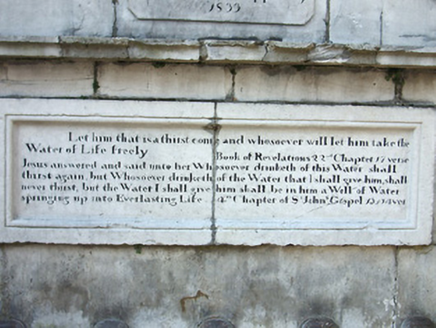 1899
Let him that is athirst come and whosoever will let him take the
Water of Life freely
Book of Revelations 22nd Chapter 17 verse
Jesus answered and said unto her Whosoever drinketh of this Water shall
thirst again, but Whosoever drinketh of the Water that I shall give him, shall
never thirst, but the Water I shall give him shall be in him a Well of Water
springing up into Everlasting Life 4th Chapter of St John's Gospel 13 14 ver